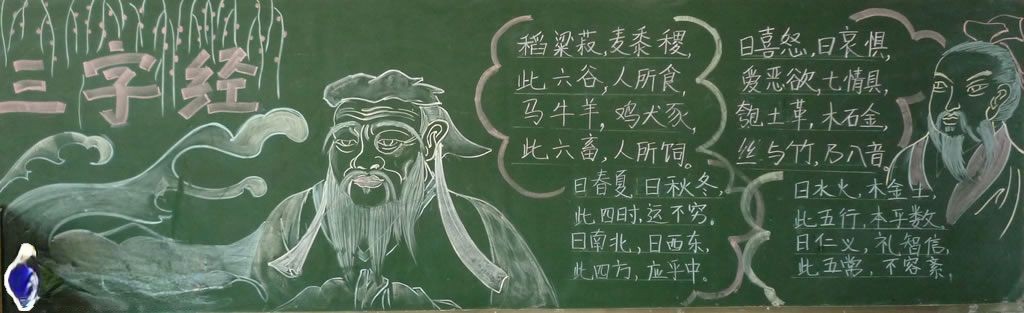 三字经
稻粱菽,麦黍稷,
此六谷,人所食,
马牛羊,鸡犬豕,
此六畜,人所饲。
曰春夏,曰秋冬,
此四时,运不穷。
曰南北,曰西东,
此四方,应乎中。
曰喜怒,曰哀惧,
爱恶欲,七情具,
匏土革,木石金,
丝与竹,乃八音
曰水火,木金土,
此五行,本乎数。
曰仁义,礼智信,
此五常,不容紊,